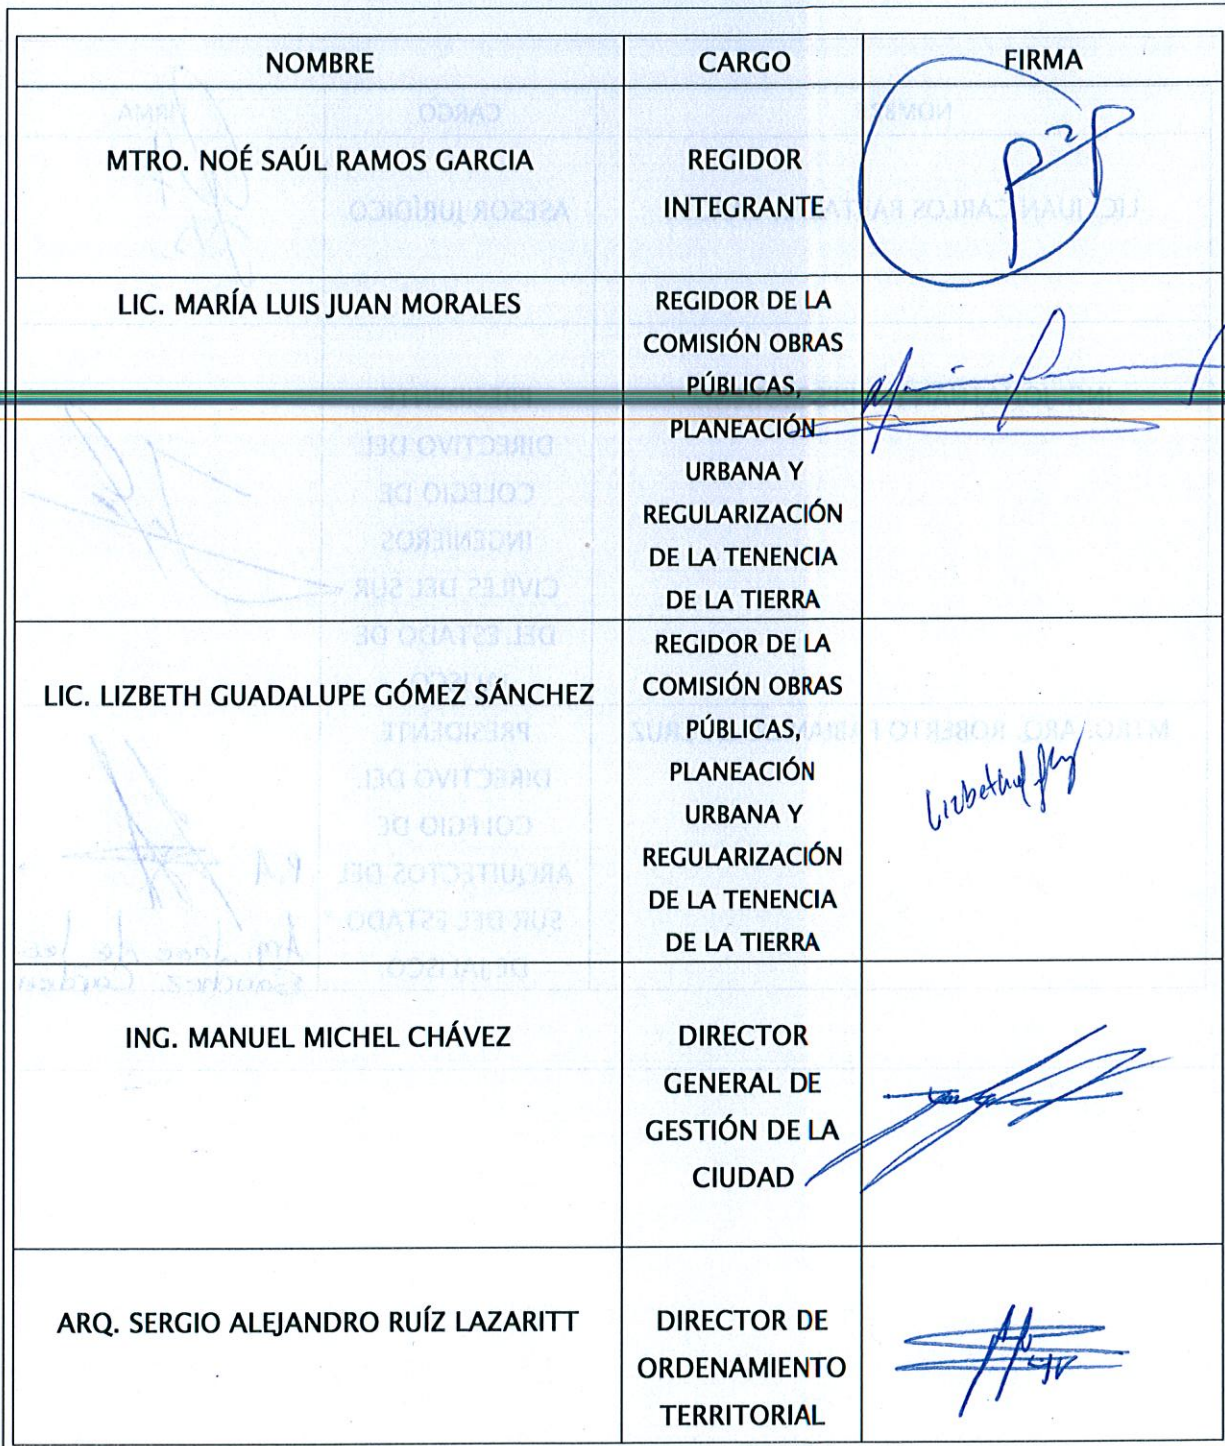 NOMBRE CARGO FIRMA
MTRO. NOÉ SAÚL RAMOS GARCIA
REGIDOR
INTEGRANTE
LIC. MARÍA LUIS JUAN MORALES
REGIDOR DE LA
COMISIÓN OBRAS
PÚBLICAS,
PLANEACIÓN
URBANA Y
REGULARIZACIÓN
DE LA TENENCIA
DE LA TIERRA
LIC. LIZBETH GUADALUPE GÓMEZ SÁNCHEZ
REGIDOR DE LA
COMISIÓN OBRAS
PÚBLICAS,
PLANEACIÓN
URBANA Y
REGULARIZACIÓN
DE LA TENENCIA
DE LA TIERRA
ING. MANUEL MICHEL CHÁVEZ
DIRECTOR
GENERAL DE
GESTIÓN DE LA
CIUDAD
ARQ. SERGIO ALEJANDRO RUÍZ LAZARITT
DIRECTOR DE
ORDENAMIENTO
TERRITORIAL